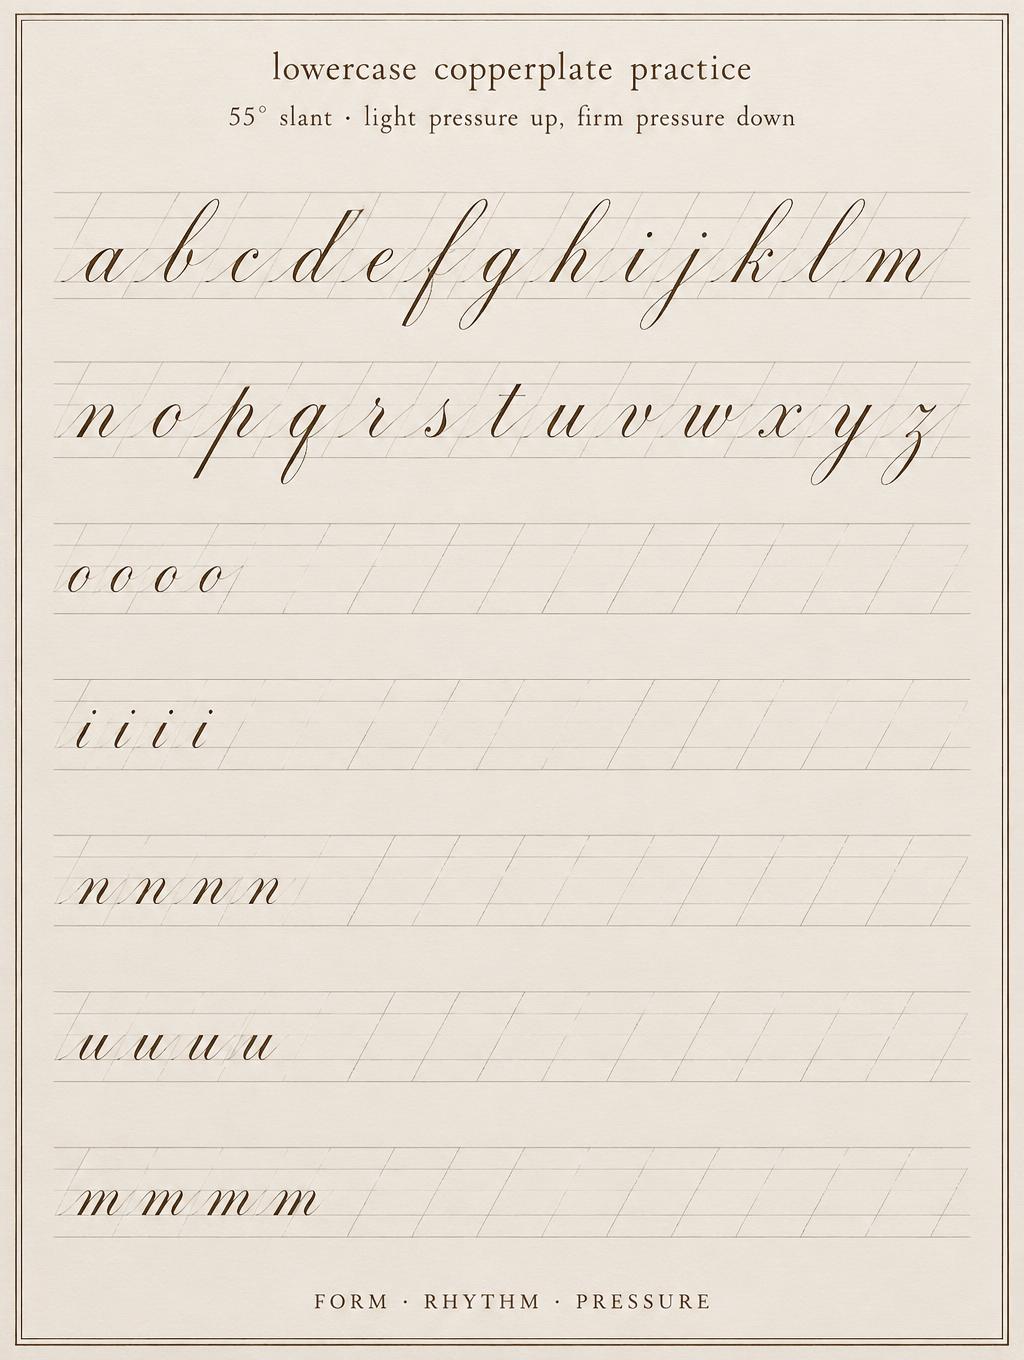 lowercase copperplate practice
55° slant · light pressure up, firm pressure down
a b c d e f g h i j k l m
n o p q r s t u v w x y z
o o o o
i i i i
n n n n
u u u u
m m m m
FORM · RHYTHM · PRESSURE